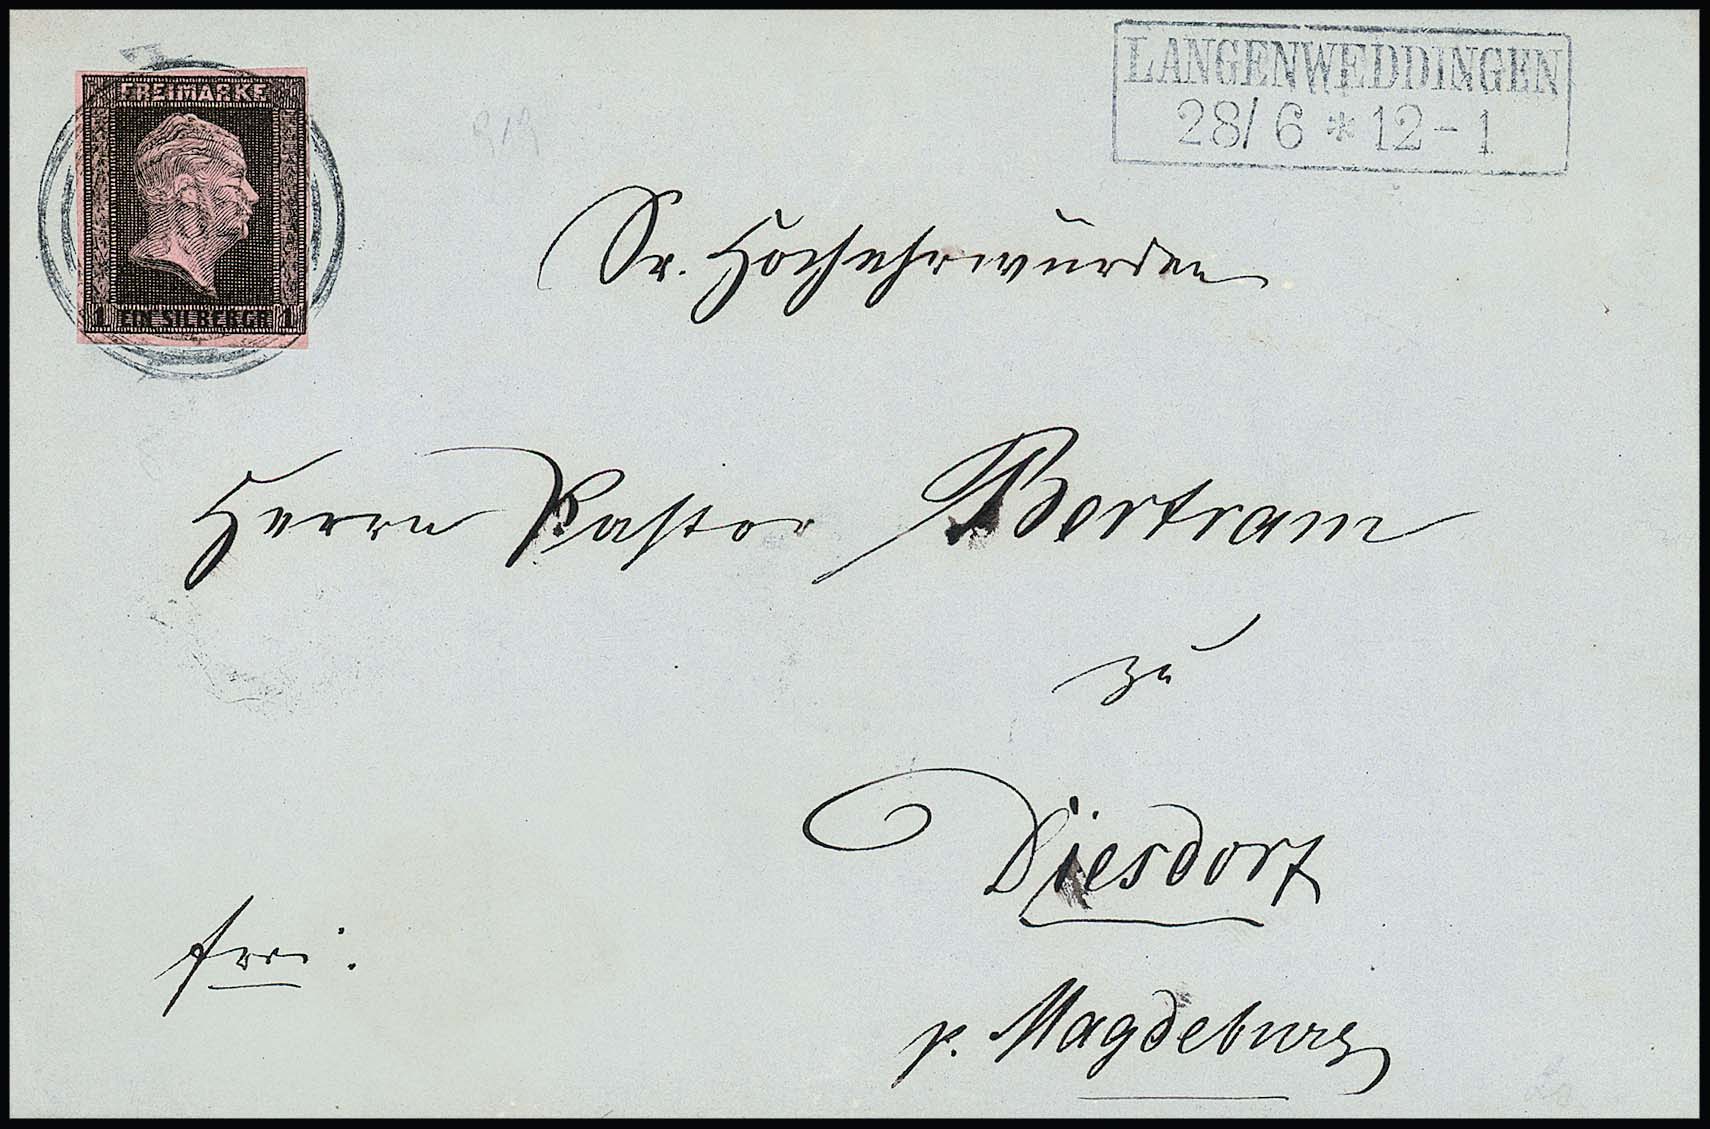 FREIMARKE
1 EIN SILBERGR. 1
LANGENWEDDINGEN
28/6 * 12-1
Sr. Hochehrwürden
Herrn Pastor Bertram
zu
Diesdorf
frei.
p. Magdeburg